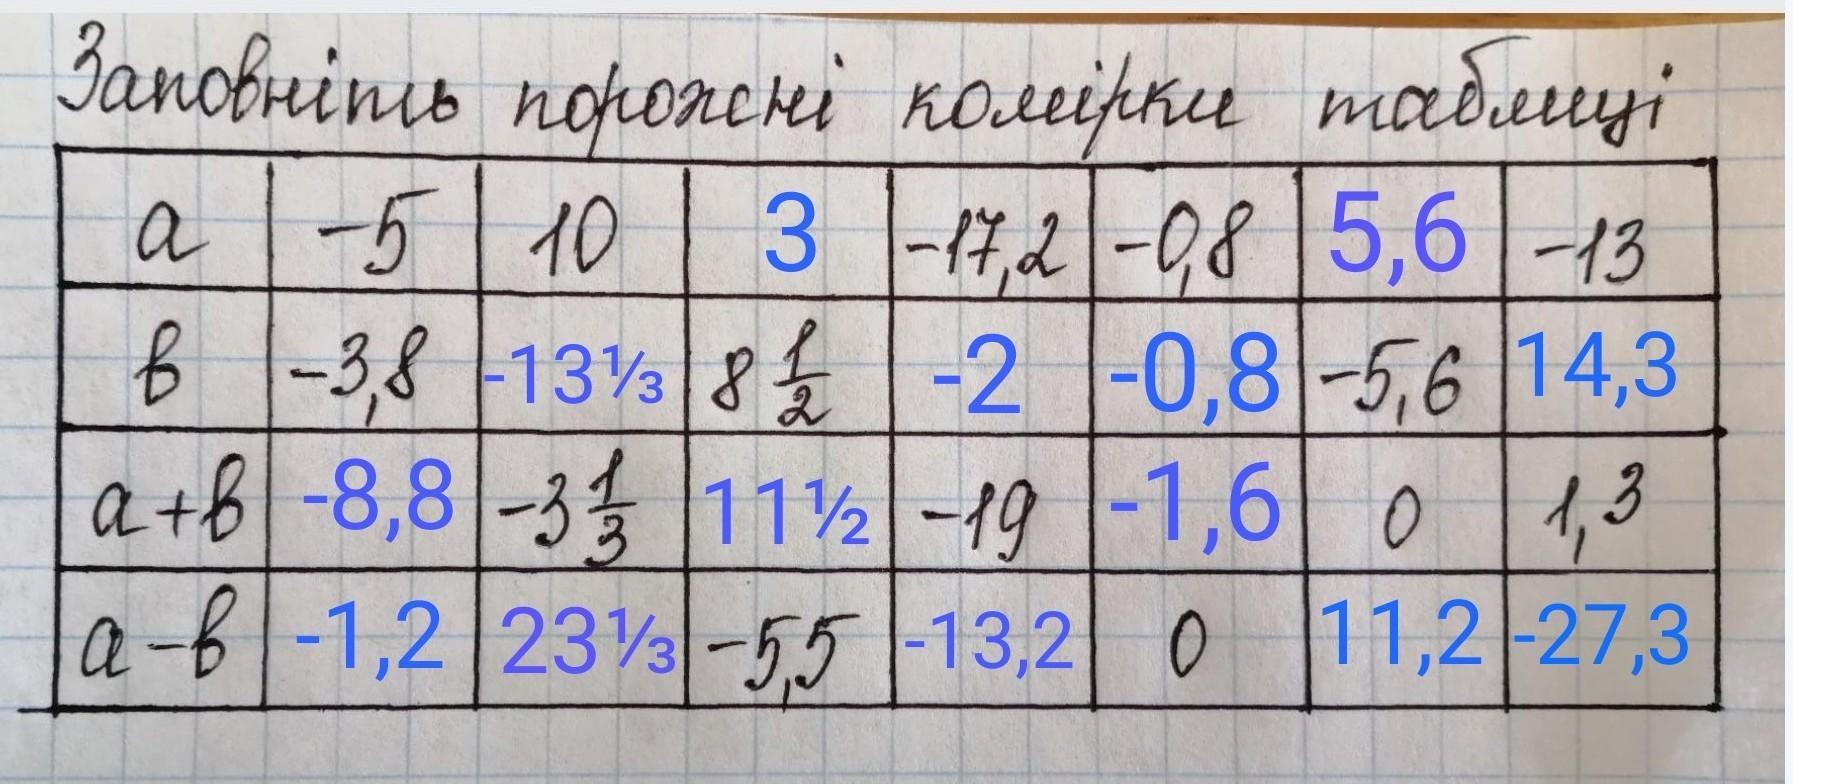 Заповніть порожні комірки таблиці
a -5 10 3 -17,2 -0,8 5,6 -13
в -3,8 -13⅓ 8 1/2 -2 -0,8 -5,6 14,3
a+в -8,8 -3 1/3 11½ -19 -1,6 0 1,3
a-в -1,2 23⅓ -5,5 -13,2 0 11,2 -27,3